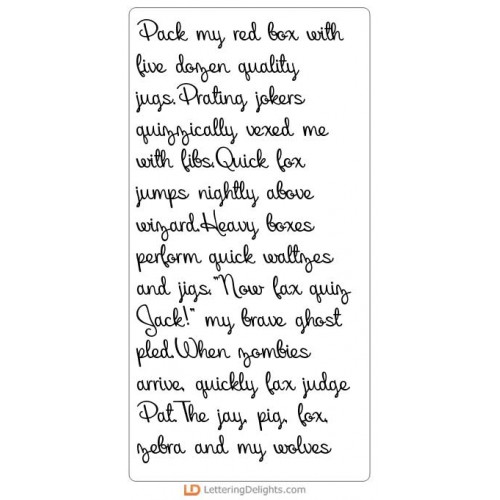 Pack my red box with
five dozen quality
jugs. Prating jokers
quizzically vexed me
with fibs. Quick fox
jumps nightly above
wizard. Heavy boxes
perform quick waltzes
and jigs. "Now fax quiz
Jack!" my brave ghost
pled. When zombies
arrive, quickly fax judge
Pat. The jay, pig, fox,
zebra and my wolves
LD LetteringDelights.com